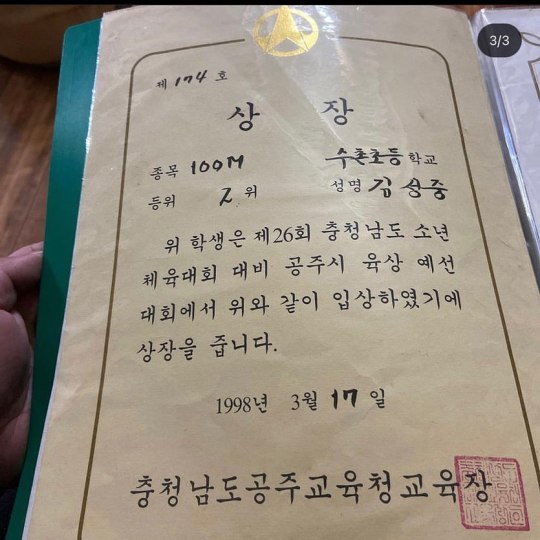 3/3
제 174 호
상 장
종목 100M 수촌초등 학교
등위 2 위 성명 김 성중
위 학생은 제26회 충청남도 소년
체육대회 대비 공주시 육상 예선
대회에서 위와 같이 입상하였기에
상장을 줍니다.
1998년 3월 17 일
충청남도공주교육청교육장